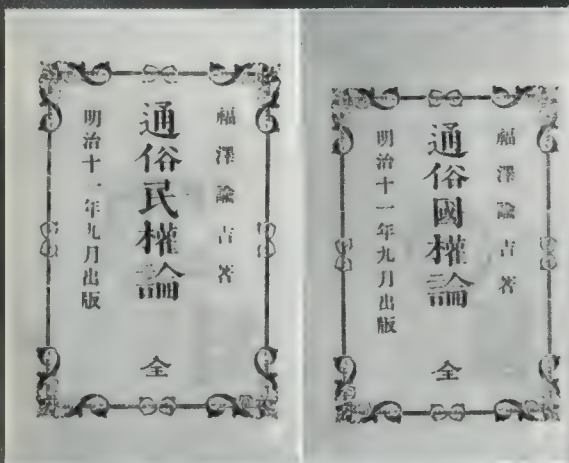 福澤諭吉著
通俗國權論 全
明治十一年九月出版
福澤諭吉著
通俗民權論 全
明治十一年九月出版